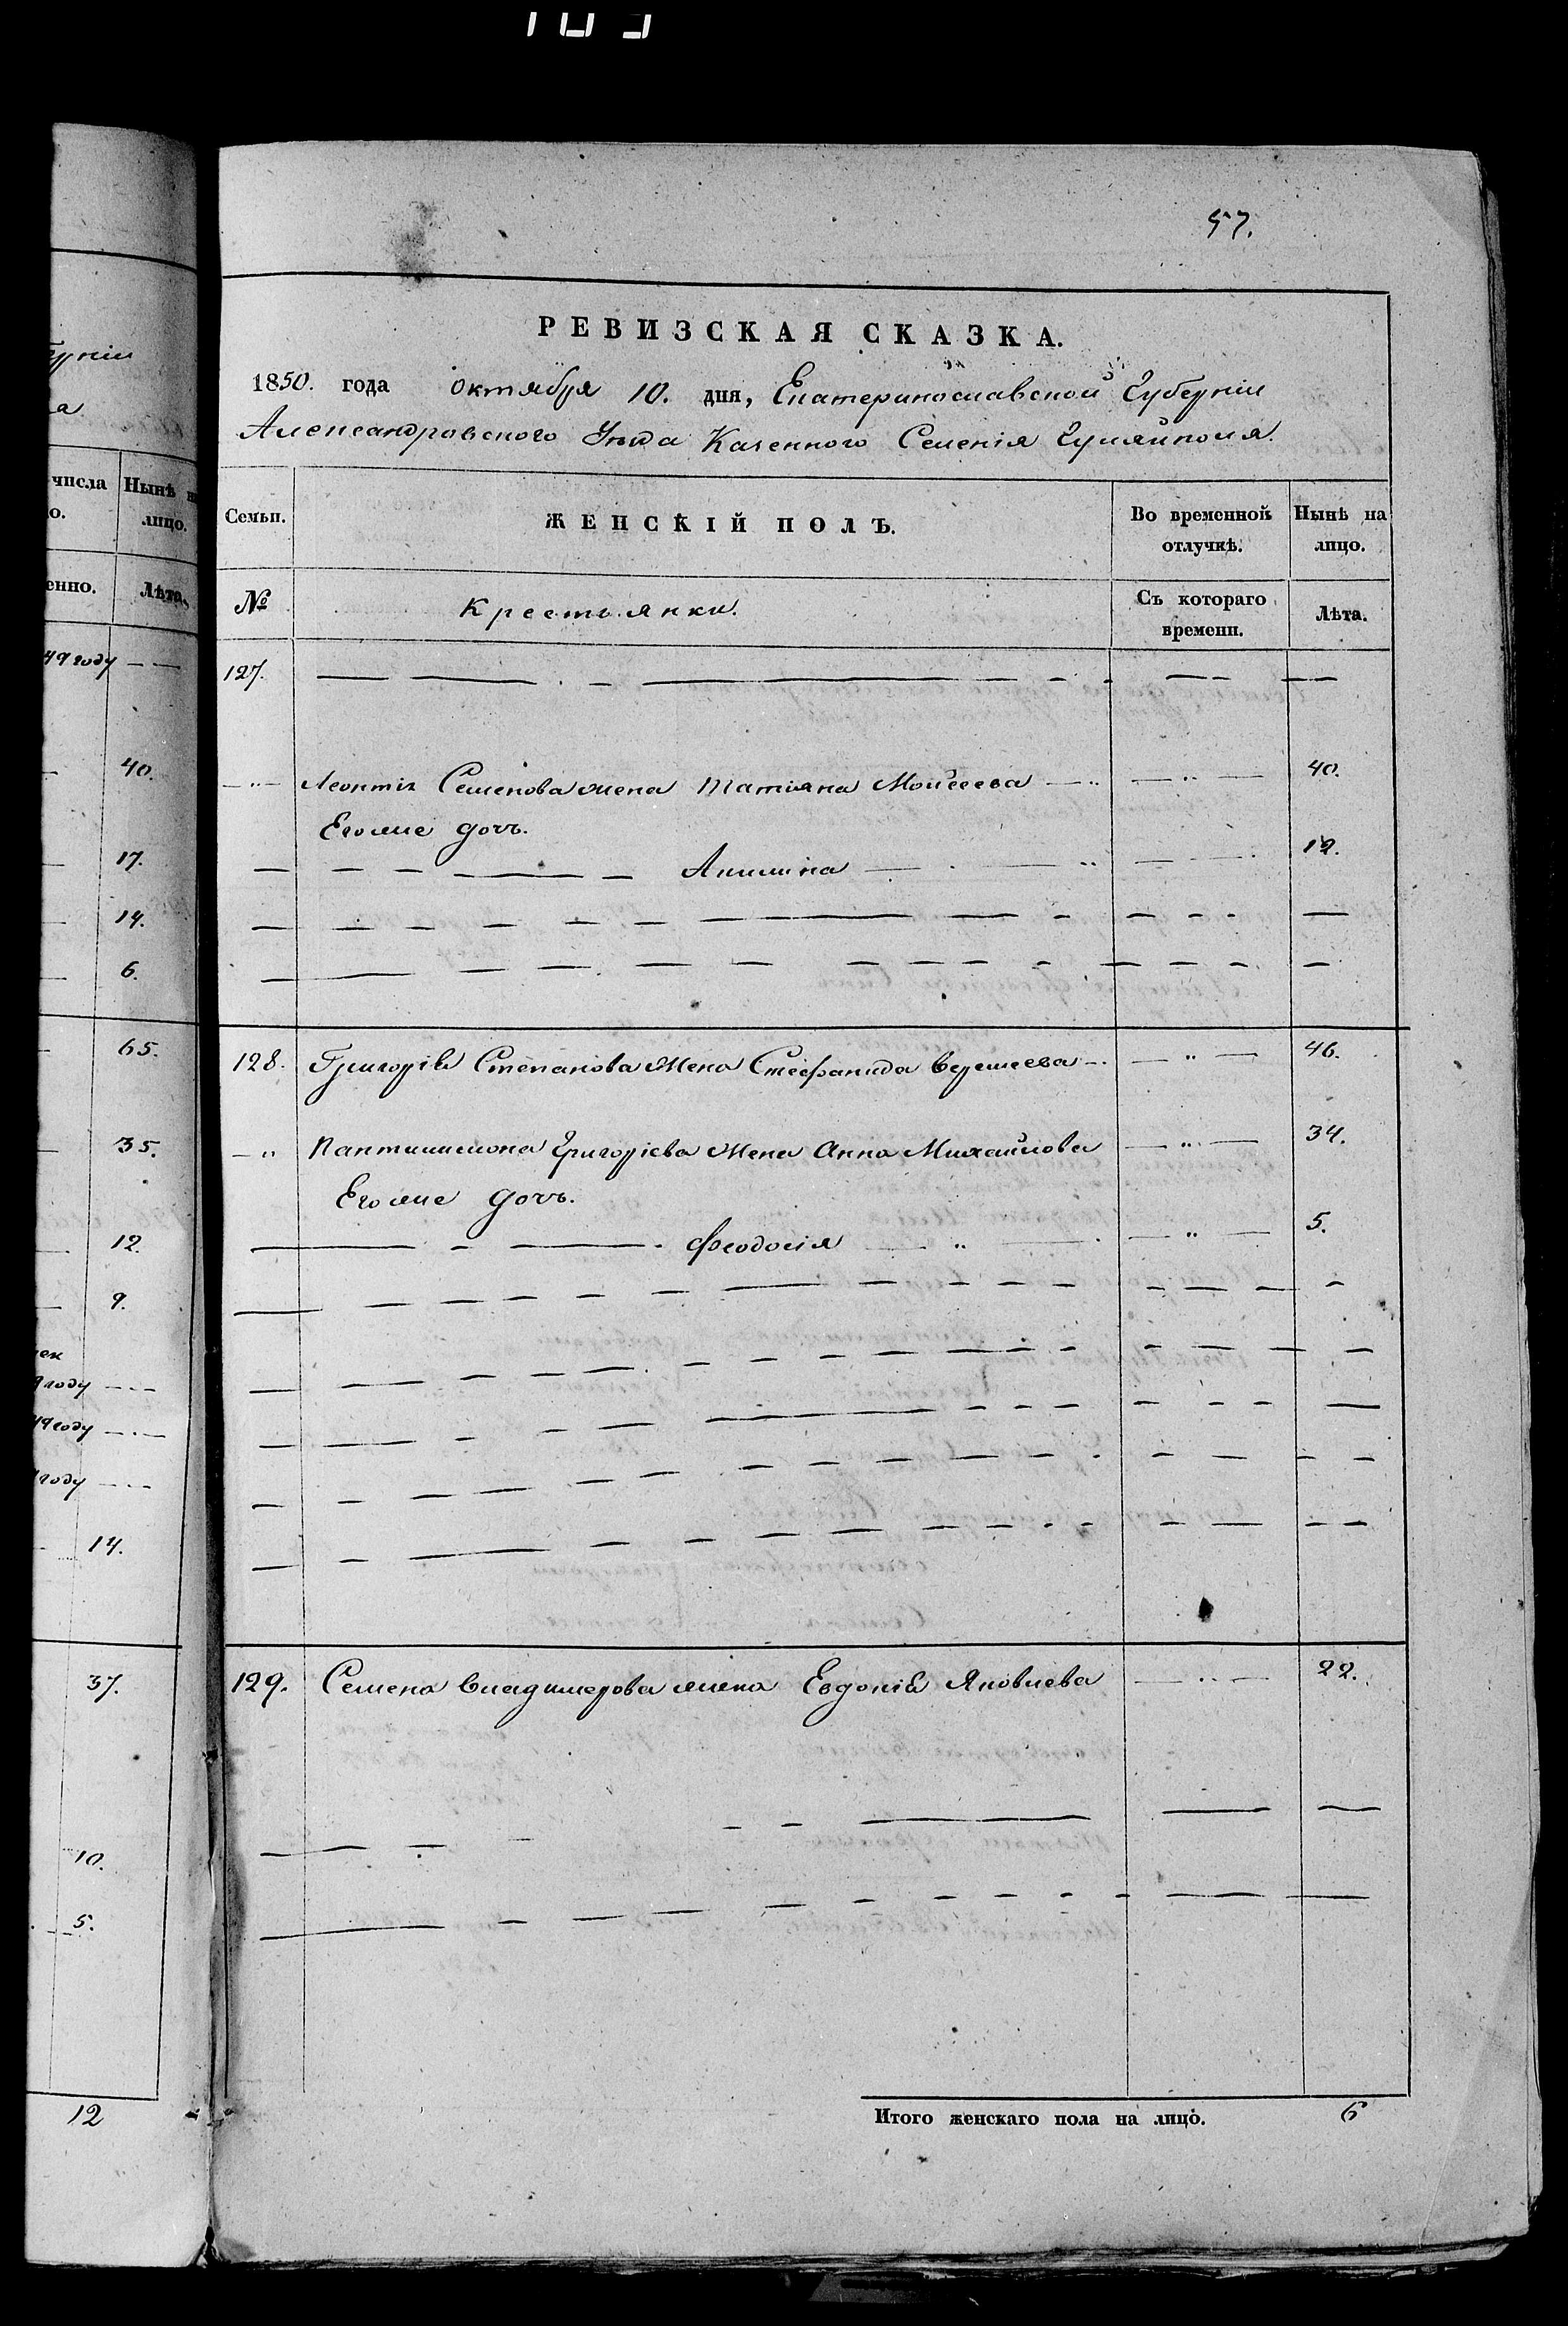 57.
РЕВИЗСКАЯ СКАЗКА.
1850. года октября 10. дня, Екатеринославской Губерніи
Александровскаго Уѣзда Казенного Селенія Гуляйполя.
числа
Нынѣ
лицо.
Лѣта.
49 году
40.
17.
14.
6.
65.
35.
12.
9.
году
49 году
году
14.
37.
10.
5.
12
Семьи.
ЖЕНСКІЙ ПОЛЪ.
Во временной отлучкѣ.
Нынѣ на лицо.
№
Крестьянки.
Съ котораго времени.
Лѣта.
127.
Леонтія Семенова жена Татіяна Моисеева 40.
Его же дочь.
Акилина 12.
128. Григорія Степанова жена Стефанида Веремеева 46.
Пантилимона Григоріева жена Анна Михайлова 34.
Его же дочь.
Феодосія 5.
129. Семена Владимерова жена Евдокія Яковлева 22.
Итого женскаго пола на лицо. 6